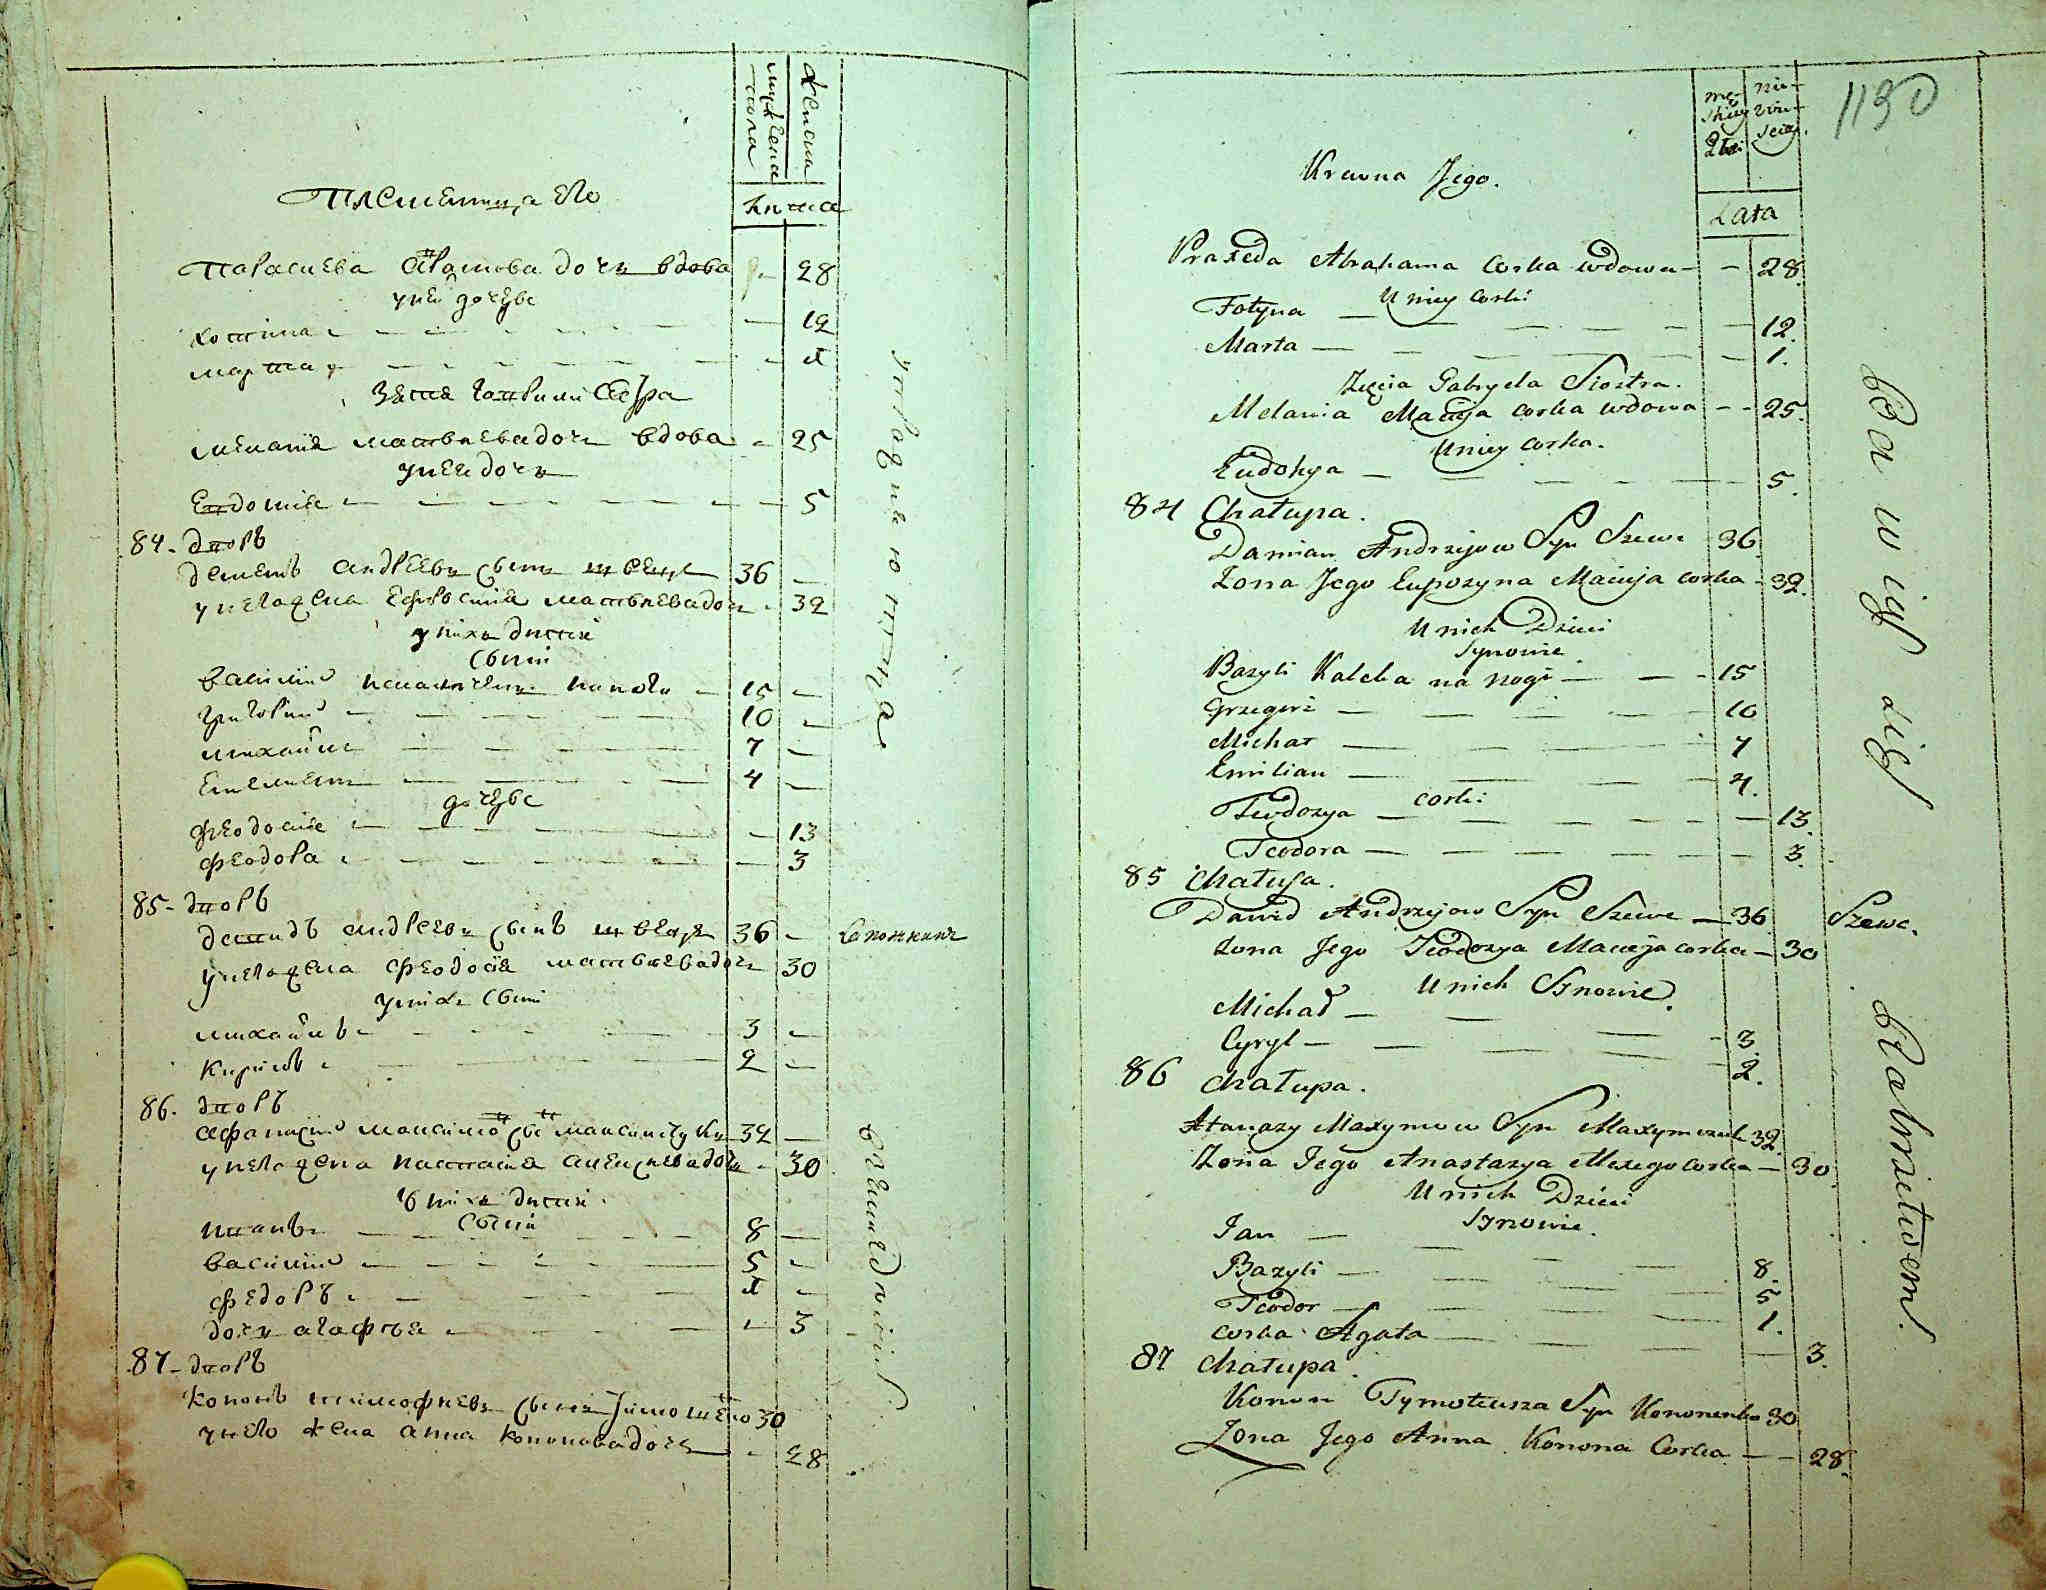 мужеска
пола
женска
лѣта
Племенница его
Параскева Аврамова дочь вдова - 28
у ней дочеры
Хотина - 12
Марта - 1
Зятя Гавриила сестра
Мелания Матвеева дочь вдова - 25
у ней дочь
Евдокия - 5
84. дворъ
Демянъ Андреевъ сынъ швець 36 -
у него жена Ефросиния Матвеева дочь - 32
у нихъ дити
сыни
Василий 15 -
Григорий 10 -
Михаилъ 7 -
Емелиянъ 4 -
дочеры
Феодосия - 13
Феодора - 3
85. дворъ
Давидъ Андреевъ сынъ швець 36 -
у него жена Феодосия Матвеева дочь 30
у нихъ сыни
Михаилъ 3 -
Кирилъ 2 -
86. дворъ
Афанасий Максимовъ сынъ 32 -
у него жена Настасия Алексиева дочь - 30
у нихъ дити
сыни
Иванъ 8 -
Василий 5 -
Федоръ 1 -
дочь Агафия - 3
87. дворъ
Кононъ Тимофиевъ сынъ 30
у него жена Анна Кононова дочь - 28
Сапожникъ
1190
mę-
skiey
Płci
nie-
wie-
sciey
Lata
Krewna Jego.
Praxeda Abrahama Corka wdowa - - 28.
U niey Corki
Fotyna - 12.
Marta - 1.
Zięcia Gabryela Siostra.
Melania Macieja corka wdowa - - 25.
U niey corka.
Eudokya - 5.
84 Chałupa.
Damian Andrzejow Syn Szewc 36
Zona Jego Euprozyna Macieja corka - 32.
U nich Dzieci
Synowie
Bazyli Kaleka na nogi - 15
Grzegorz - 10
Michał - 7
Emilian - 4.
corki
Teodozya - 13.
Teodora - 3.
85 Chałupa.
Dawid Andrzejow Syn Szewc - 36
Zona Jego Teodozya Macieja corka - 30
U nich Synowie.
Michał - 3.
Cyryl - 2.
86 Chałupa.
Atanazy Maxymow Syn Maxymczuk 32.
Zona Jego Anastazya Alexego corka - 30.
U nich Dzieci
Synowie.
Jan - 8.
Bazyli - 5.
Teodor - 1.
corka Agata - 3.
87 Chałupa.
Konon Tymoteusza Syn Kononenko 30.
Zona Jego Anna Konona Corka - - 28.
Szewc.